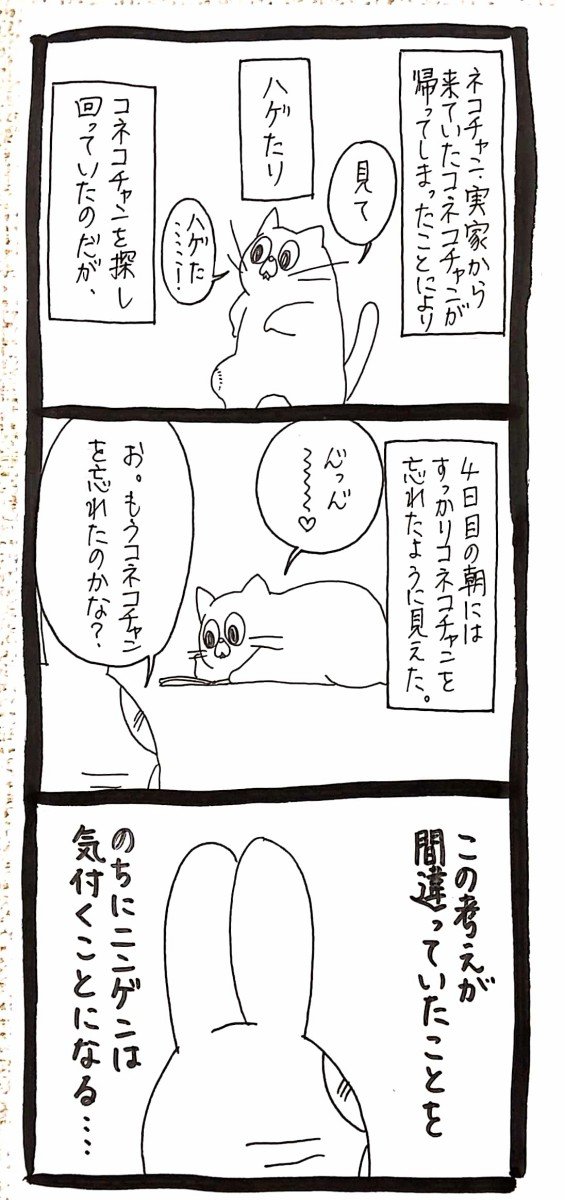 ネコチャン、実家から
来ていたコネコチャンが
帰ってしまったことにより
見て
ハゲたり
ハゲた
……!
コネコチャンを探し
回っていたのだが、
4日目の朝には
すっかりコネコチャンを
忘れたように見えた。
お。もうコネコチャン
を忘れたのかな?
この考えが
間違っていたことを
のちにニンゲンは
気付くことになる……